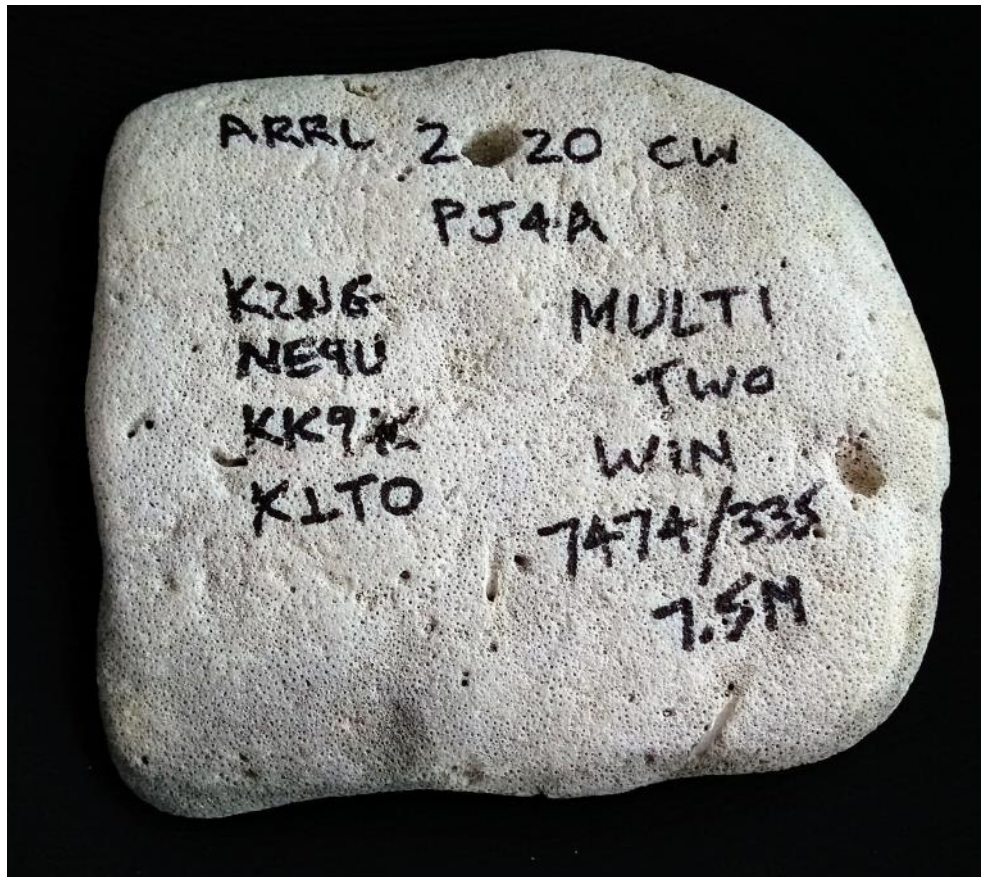 ARRL 2020 CW
PJ4A
K2NG
NE9U
KK9K
K1TO
MULTI
TWO
WIN
7474/335
7.5M